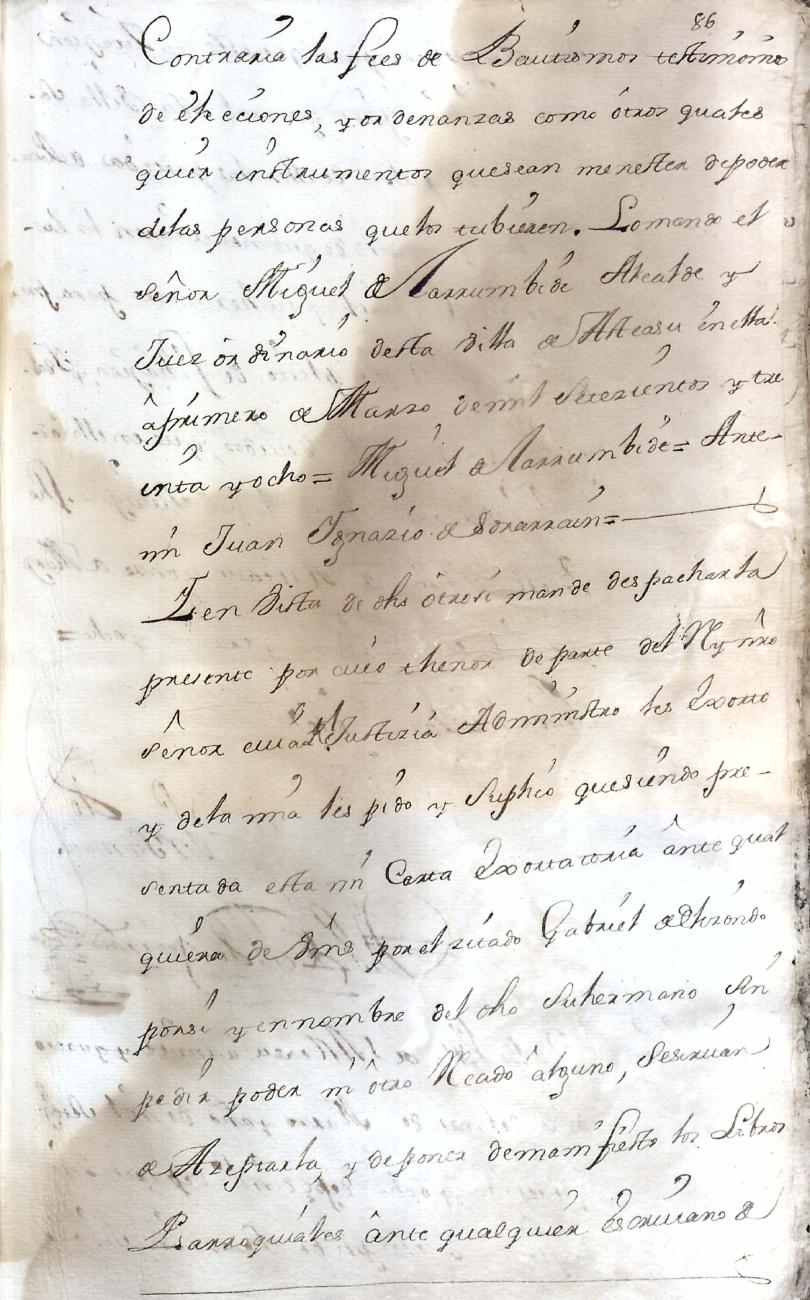 86
Contraria las fees de Bautismos testimonio
de elecciones, y ordenanzas como otros quales
quier instrumentos quesean menester depoder
delas personas quelos tubieren. Lomando el
señor Miguel de Larrumbide Alcalde y
Juez ordinario desta Villa de Asteasu enella
aprimero de Marzo demil Setezientos y tre
inta y ocho= Miguel de Larrumbide= Ante
mi Juan Ignazio de Sorarrain=
I en Vista de dho otresi mande despacharla
presente por cuio thenor de parte del Rey nro
señor cuia Justizia Administro les Exorto
y dela mia les pido y Suplico quesiendo pre-
sentada esta mi Carta Exortatoria ante qual
quiera de Vms por el zitado Gabriel de Elizondo
porsi y ennombre del dho Suhermano Sin
pedir poder ni otro Recado alguno, Sesirvan
de Azeptarla, y deponer demanifiesto los Libros
Parroquiales ante qualquier Escrivano de